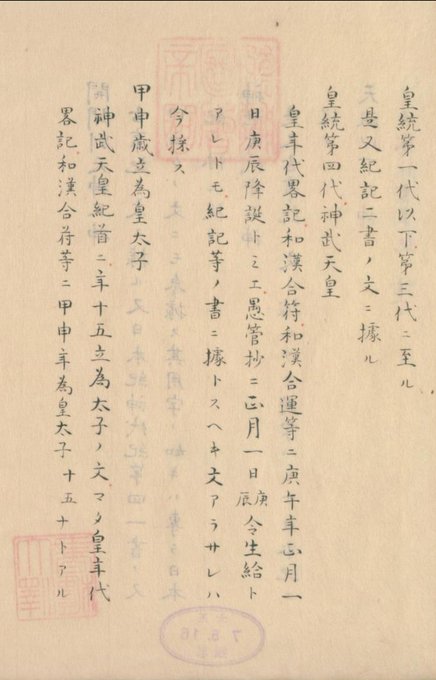 皇統第一代以下第三代ニ至ル
是又紀記二書ノ文ニ據ル
皇統第四代神武天皇
皇年代畧記和漢合符和漢合運等ニ庚午年正月一
日庚辰降誕トミエ愚管抄ニ正月一日庚辰令生給ト
アレトモ紀記等ノ書ニ據トスヘキ文アラサレハ
今採ス
甲申歳立為皇太子
神武天皇紀首ニ年十五立為太子ノ文マタ皇年代
畧記和漢合符等ニ甲申年為皇太子十五ナトアル
7.5.16